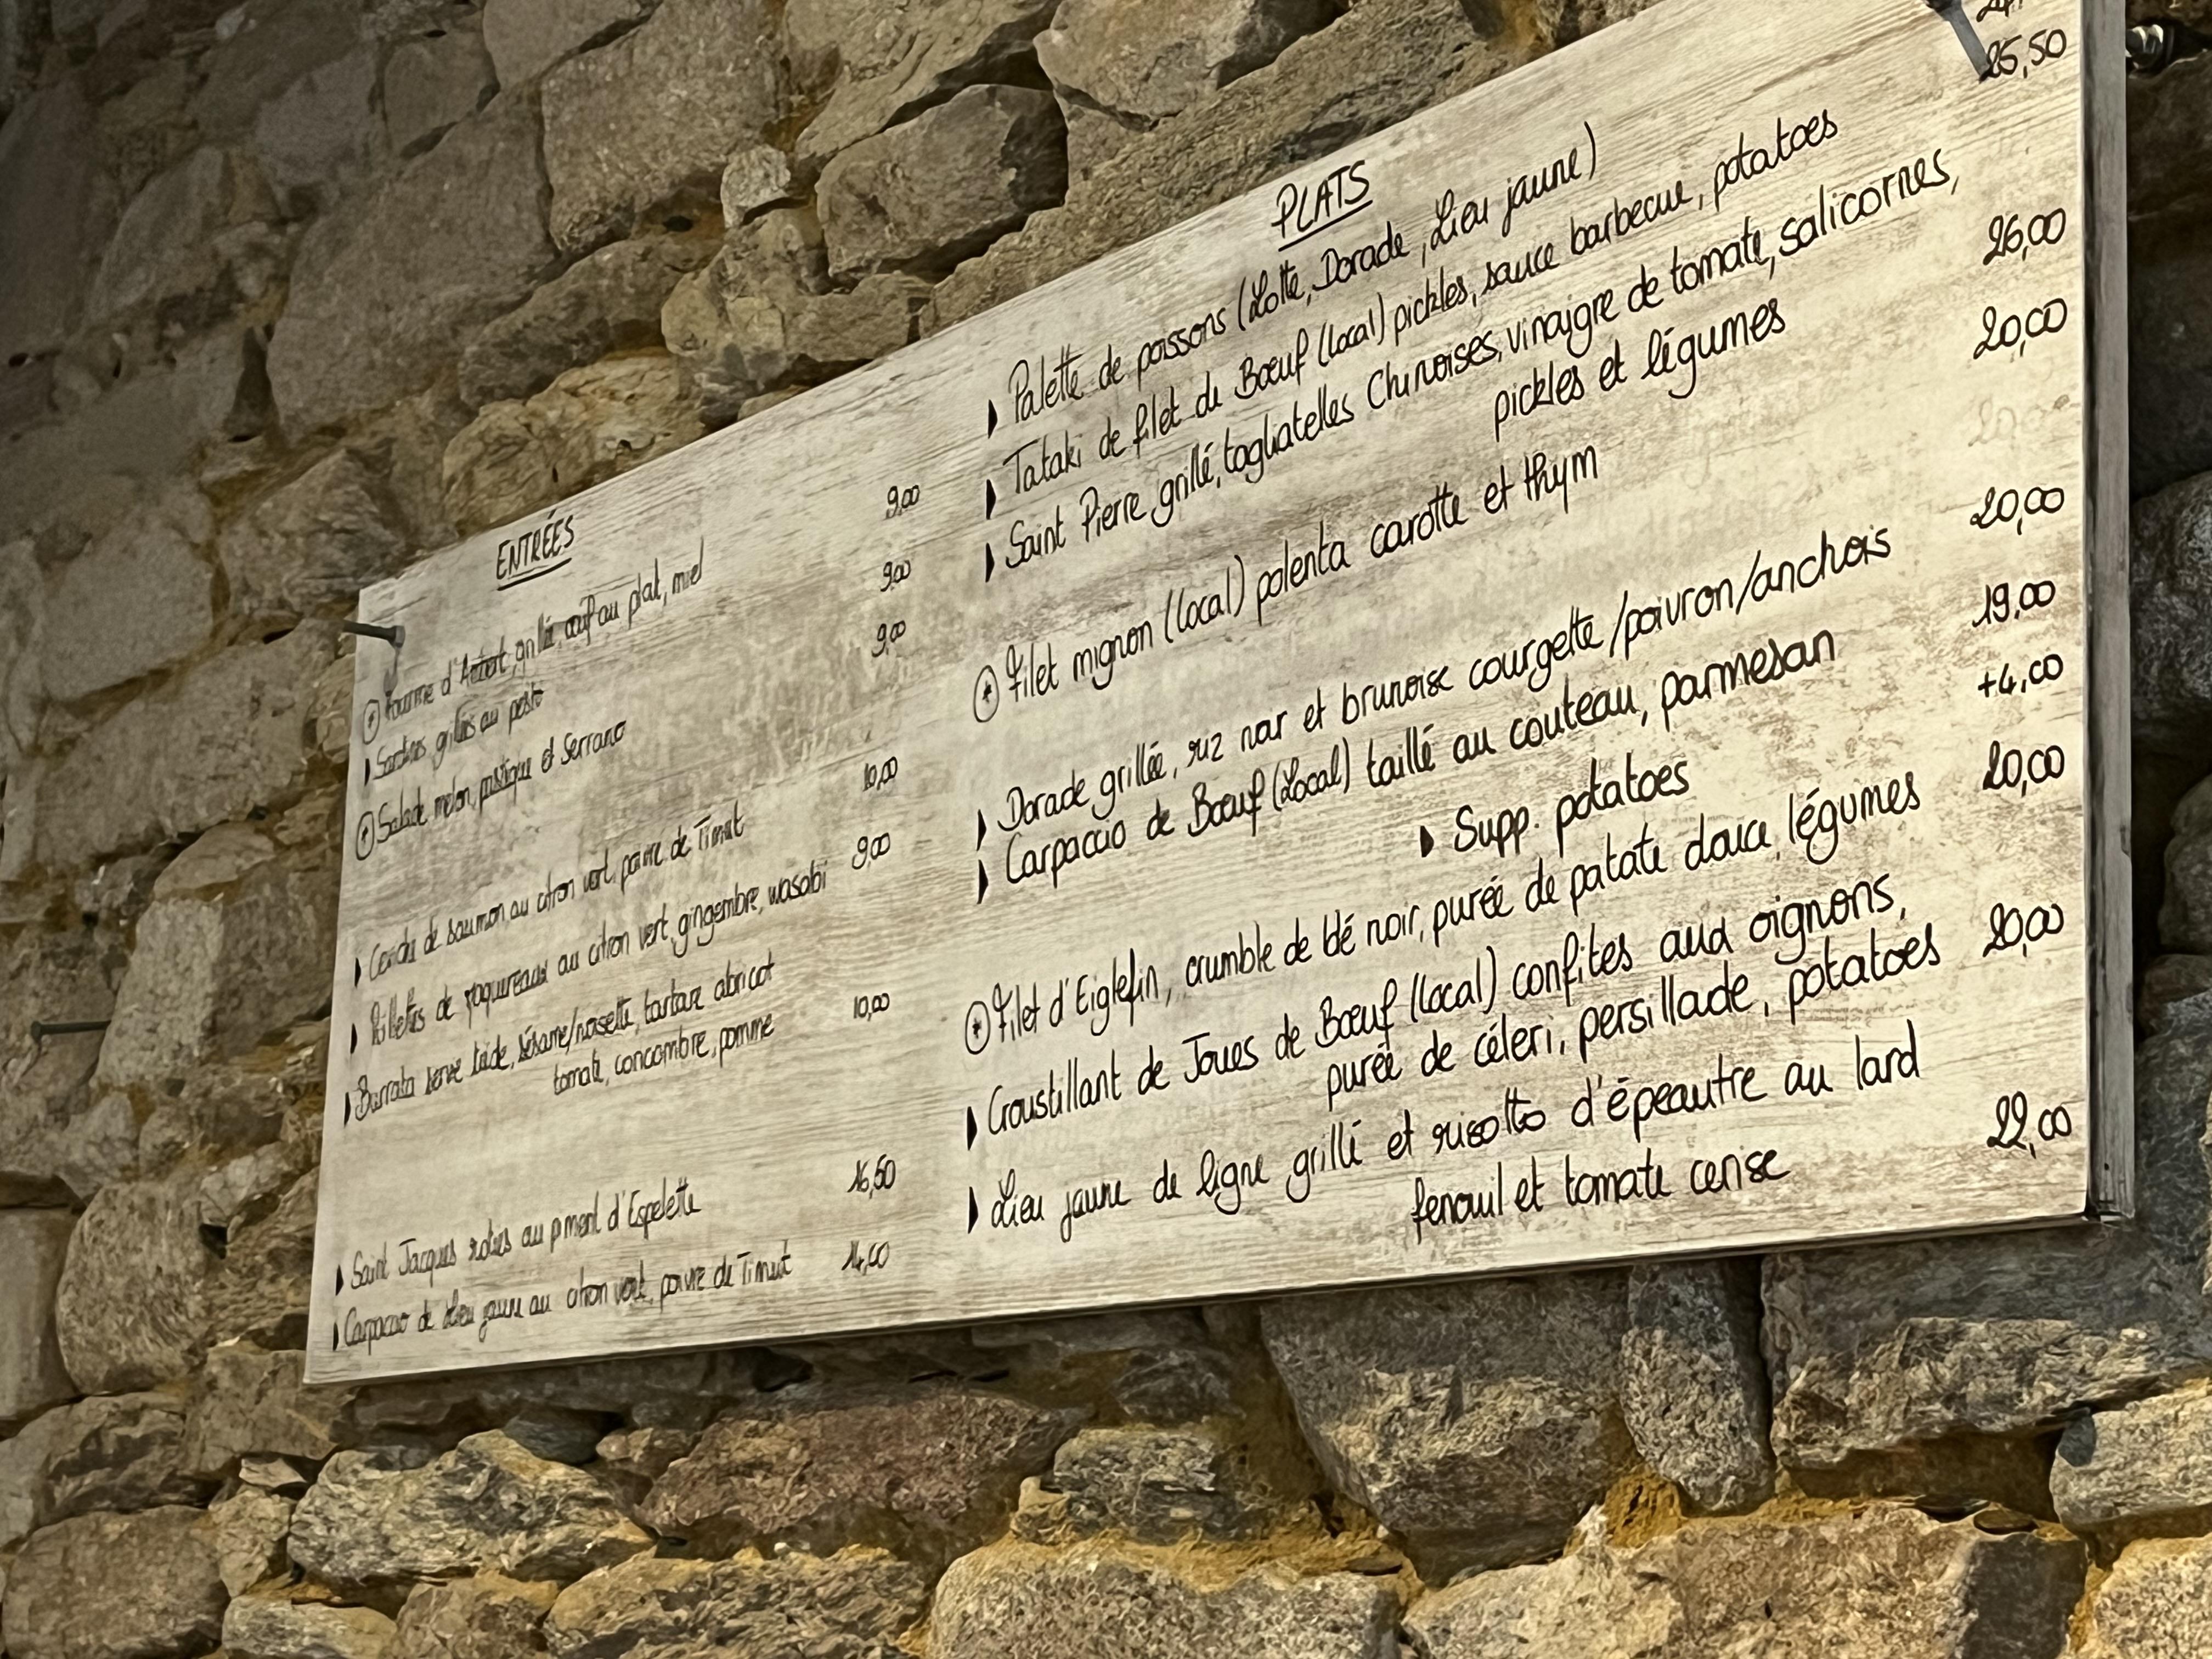 ENTRÉES
* Fourme d'Ambert grillée, œuf au plat, miel 9,00
Sardines grillées au pesto 9,00
* Salade melon, pastèque et Serrano 9,00
de saumon au citron vert, poivre de Timut 10,00
Rillettes de maquereaux au citron vert, gingembre, wasabi 9,00
Burrata servie tiède, sésame/noisette, tartare abricot
tomate, concombre, pomme 10,00
Saint Jacques roties au piment d'Espelette 16,50
Carpaccio de Lieu jaune au citron vert, poivre de Timut 14,00
PLATS
Palette de poissons (Lotte, Dorade, Lieu jaune)
Tataki de filet de Bœuf (local) pickles, sauce barbecue, potatoes 25,50
Saint Pierre grillé, tagliatelles Chinoises, vinaigre de tomate, salicornes,
pickles et légumes 26,00
* Filet mignon (local) polenta carotte et thym 20,00
Dorade grillée, riz noir et brunoise courgette/poivron/anchois 20,00
Carpaccio de Bœuf (Local) taillé au couteau, parmesan 19,00
Supp. potatoes +4,00
* Filet d'Eiglefin, crumble de blé noir, purée de patate douce, légumes 20,00
Croustillant de Joues de Bœuf (local) confites aux oignons,
purée de céleri, persillade, potatoes 20,00
Lieu jaune de ligne grillé et risotto d'épeautre au lard
fenouil et tomate cerise 22,00